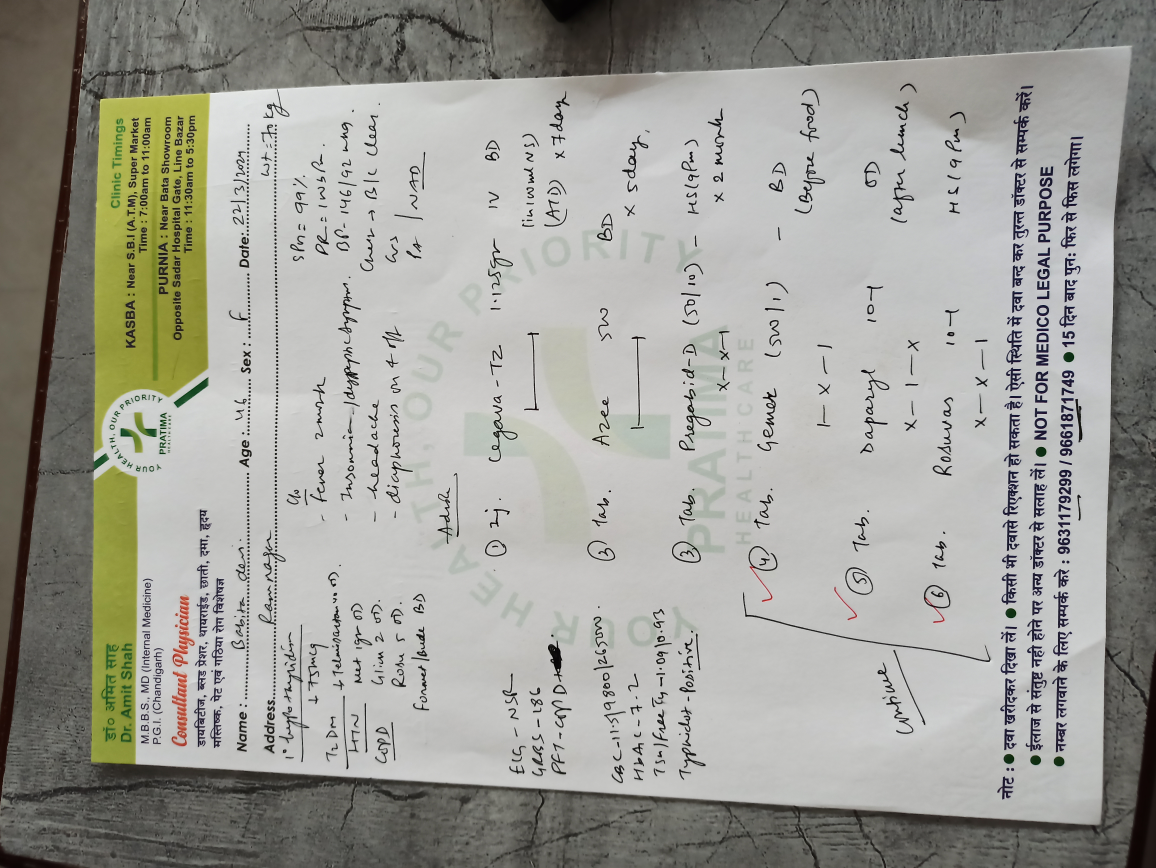 डॉ० अमित साह
Dr. Amit Shah
M.B.B.S., MD (Internal Medicine)
P.G.I. (Chandigarh)
Consultant Physician
डायबिटीज, ब्लड प्रेशर, थायराईड, छाती, दमा, हृदय
मस्तिष्क, पेट एवं गठिया रोग विशेषज्ञ
YOUR HEALTH, OUR PRIORITY
PRATIMA
HEALTHCARE
Clinic Timings
KASBA : Near S.B.I (A.T.M), Super Market
Time : 7:00am to 11:00am
PURNIA : Near Bata Showroom
Opposite Sadar Hospital Gate, Line Bazar
Time : 11:30am to 5:30pm
Name : Babita devi Age 46 Sex : F Date: 22/3/2024
Address Ramnagar Wt = 70 kg
1° hypothyroidism
↓ 75mcg
T2DM
HTN
COPD
met 1gr OD
Glim 2 OD.
Rosu 5 OD.
BD
ECG - NSR
GRBS - 186
PFT - COPD
CBC - 11.5/9800/265000
HbA1C - 7.2
Typhidot - Positive
C/o
- Fever 2 month
- Insomnia
- headache
- diaphoresis on & off
SPO2 = 99%
BP - 146/92 mmHg.
Chest → B/L clear.
CVS
PA / NAD
Advice
① Inj. Cegava - TZ 1.125gr IV BD
(in 100ml NS)
(ATD) x 7day
Tab. Azee 500 BD
x 5day
③ Tab. Pregabid-D (50/10) - HS (9Pm)
x - x - 1 x 2 month
④ Tab. Gemek (500/1) - BD
1 - x - 1 (Before food)
⑤ Tab. Daparyl 10-1 OD
x - 1 - x (after lunch)
⑥ Tab. Rosuvas 10-1 HS (9Pm)
x - x - 1
continue
नोट : ● दवा खरीदकर दिखा लें। ● किसी भी दवासे रिएक्शन हो सकता है। ऐसी स्थिति में दवा बन्द कर तुरन्त डॉक्टर से सम्पर्क करें।
● ईलाज से संतुष्ट नही होने पर अन्य डॉक्टर से सलाह लें। ● NOT FOR MEDICO LEGAL PURPOSE
● नम्बर लगवाने के लिए सम्पर्क करे : 9631179299 / 9661871749 ● 15 दिन बाद पुन: फिर से फिस लगेगा।